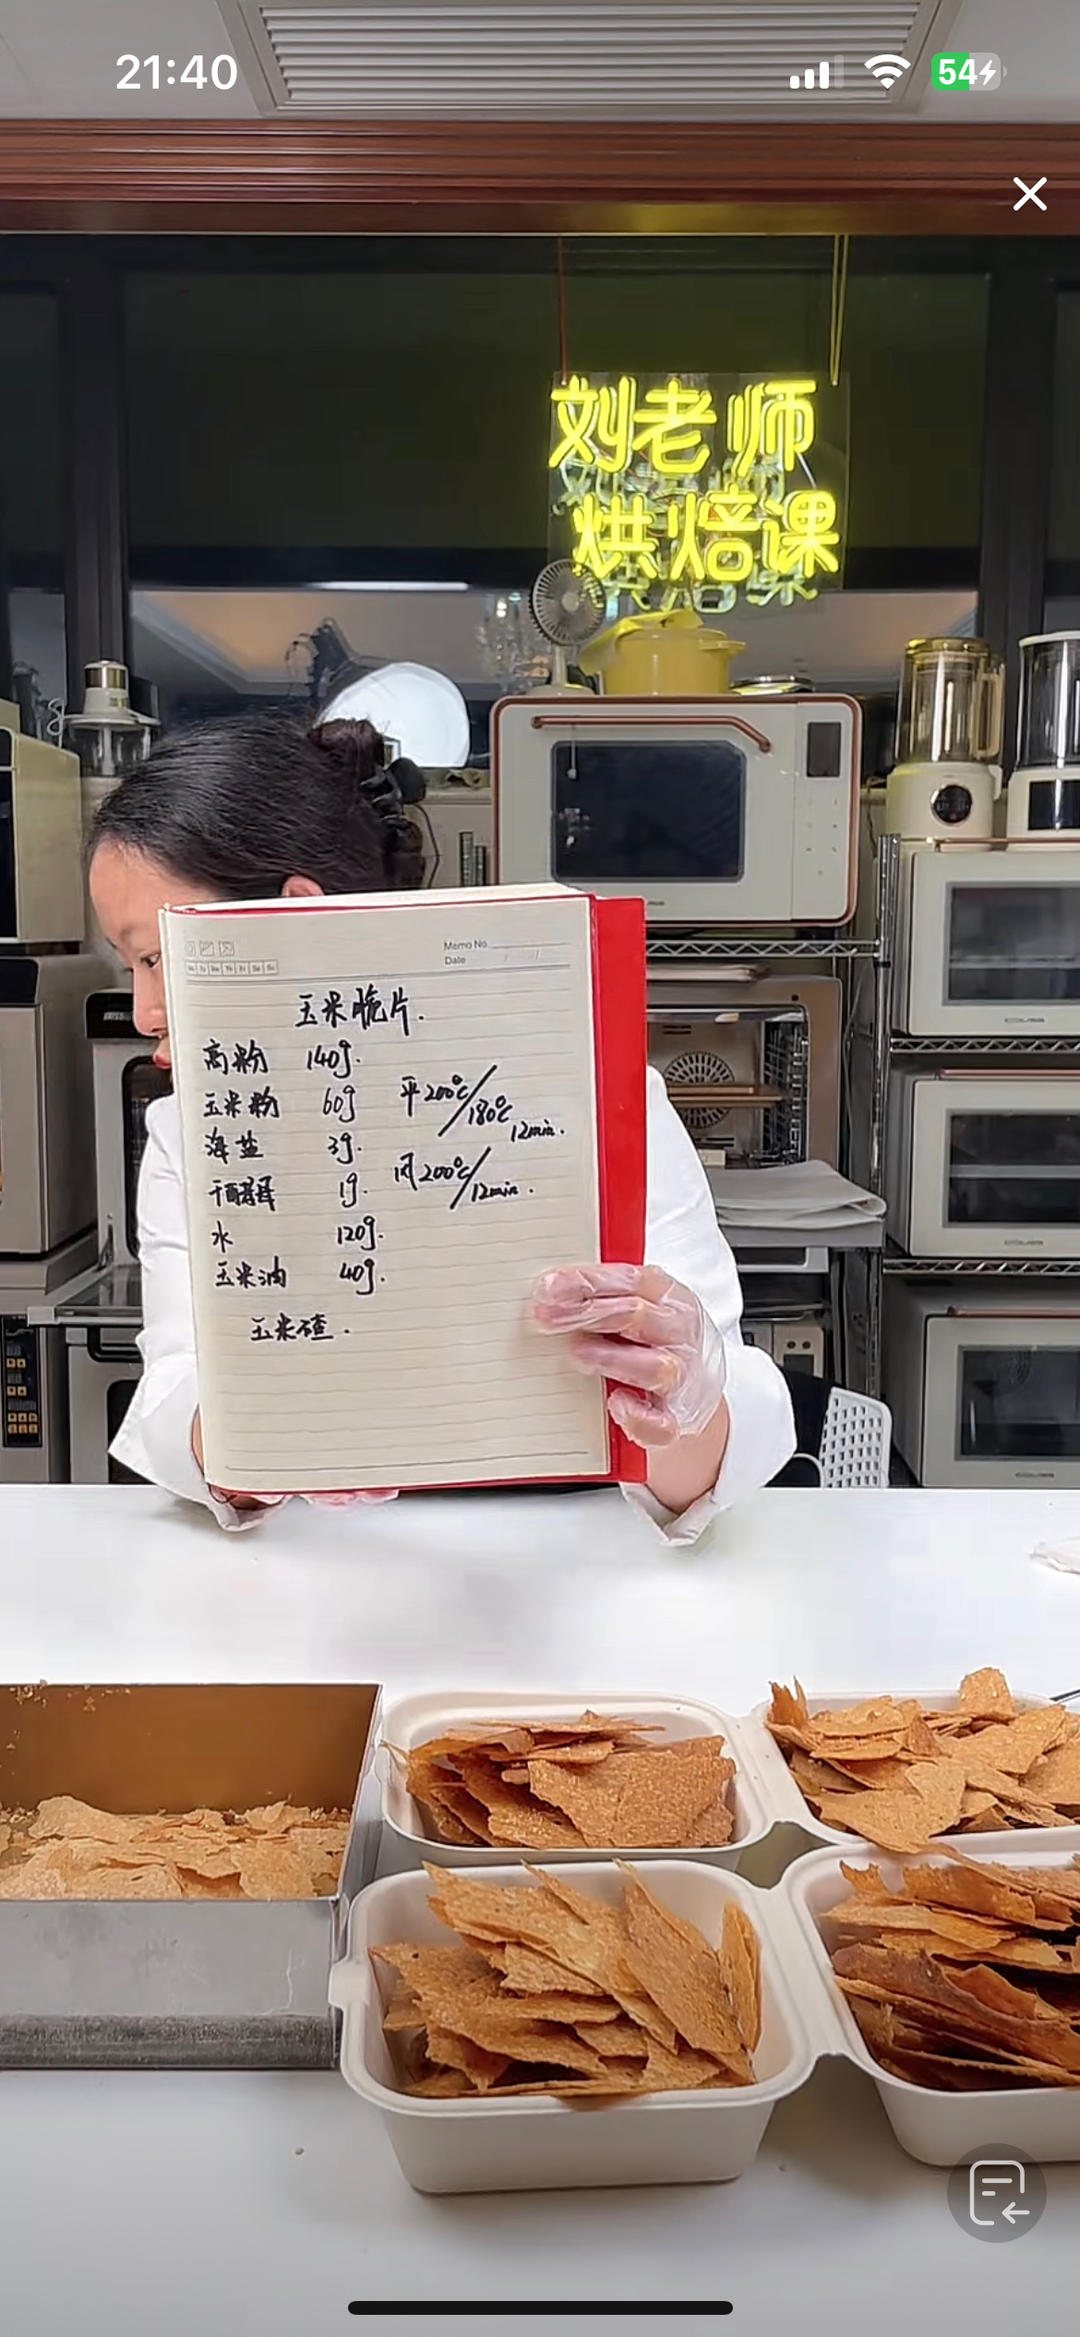 21:40
54
刘老师
烘焙课
Memo No.
Date
Mo Tu We Th Fr Sa Su
玉米脆片.
高粉 140g.
玉米粉 60g 平200℃/180℃ 12min.
海盐 3g.
干酵母 1g. 风200℃/12min.
水 120g.
玉米油 40g.
玉米碴.